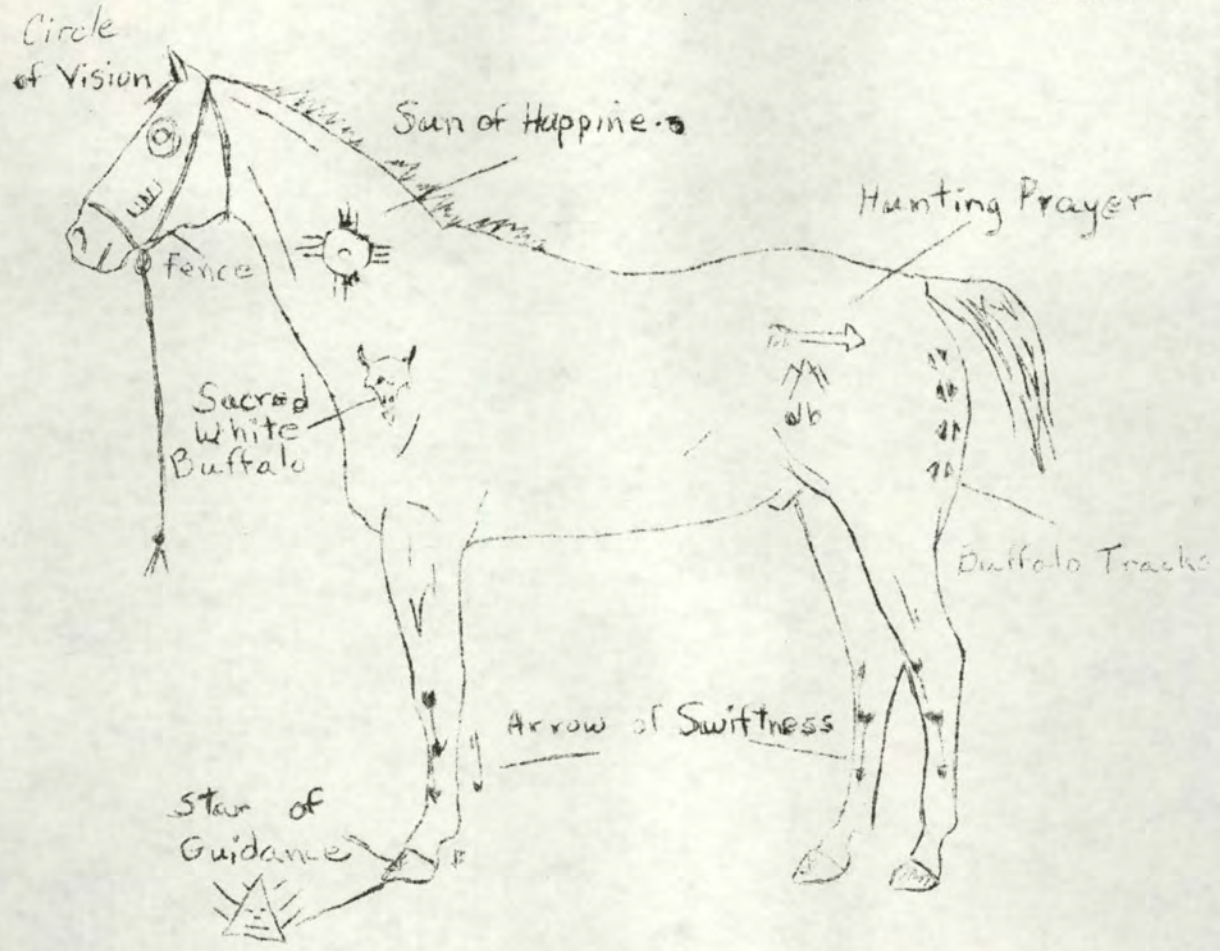 Circle
of Vision
Sun of Happine
Hunting Prayer
Fence
Sacred
White
Buffalo
Buffalo Tracks
Arrow of Swiftness
Star of
Guidance